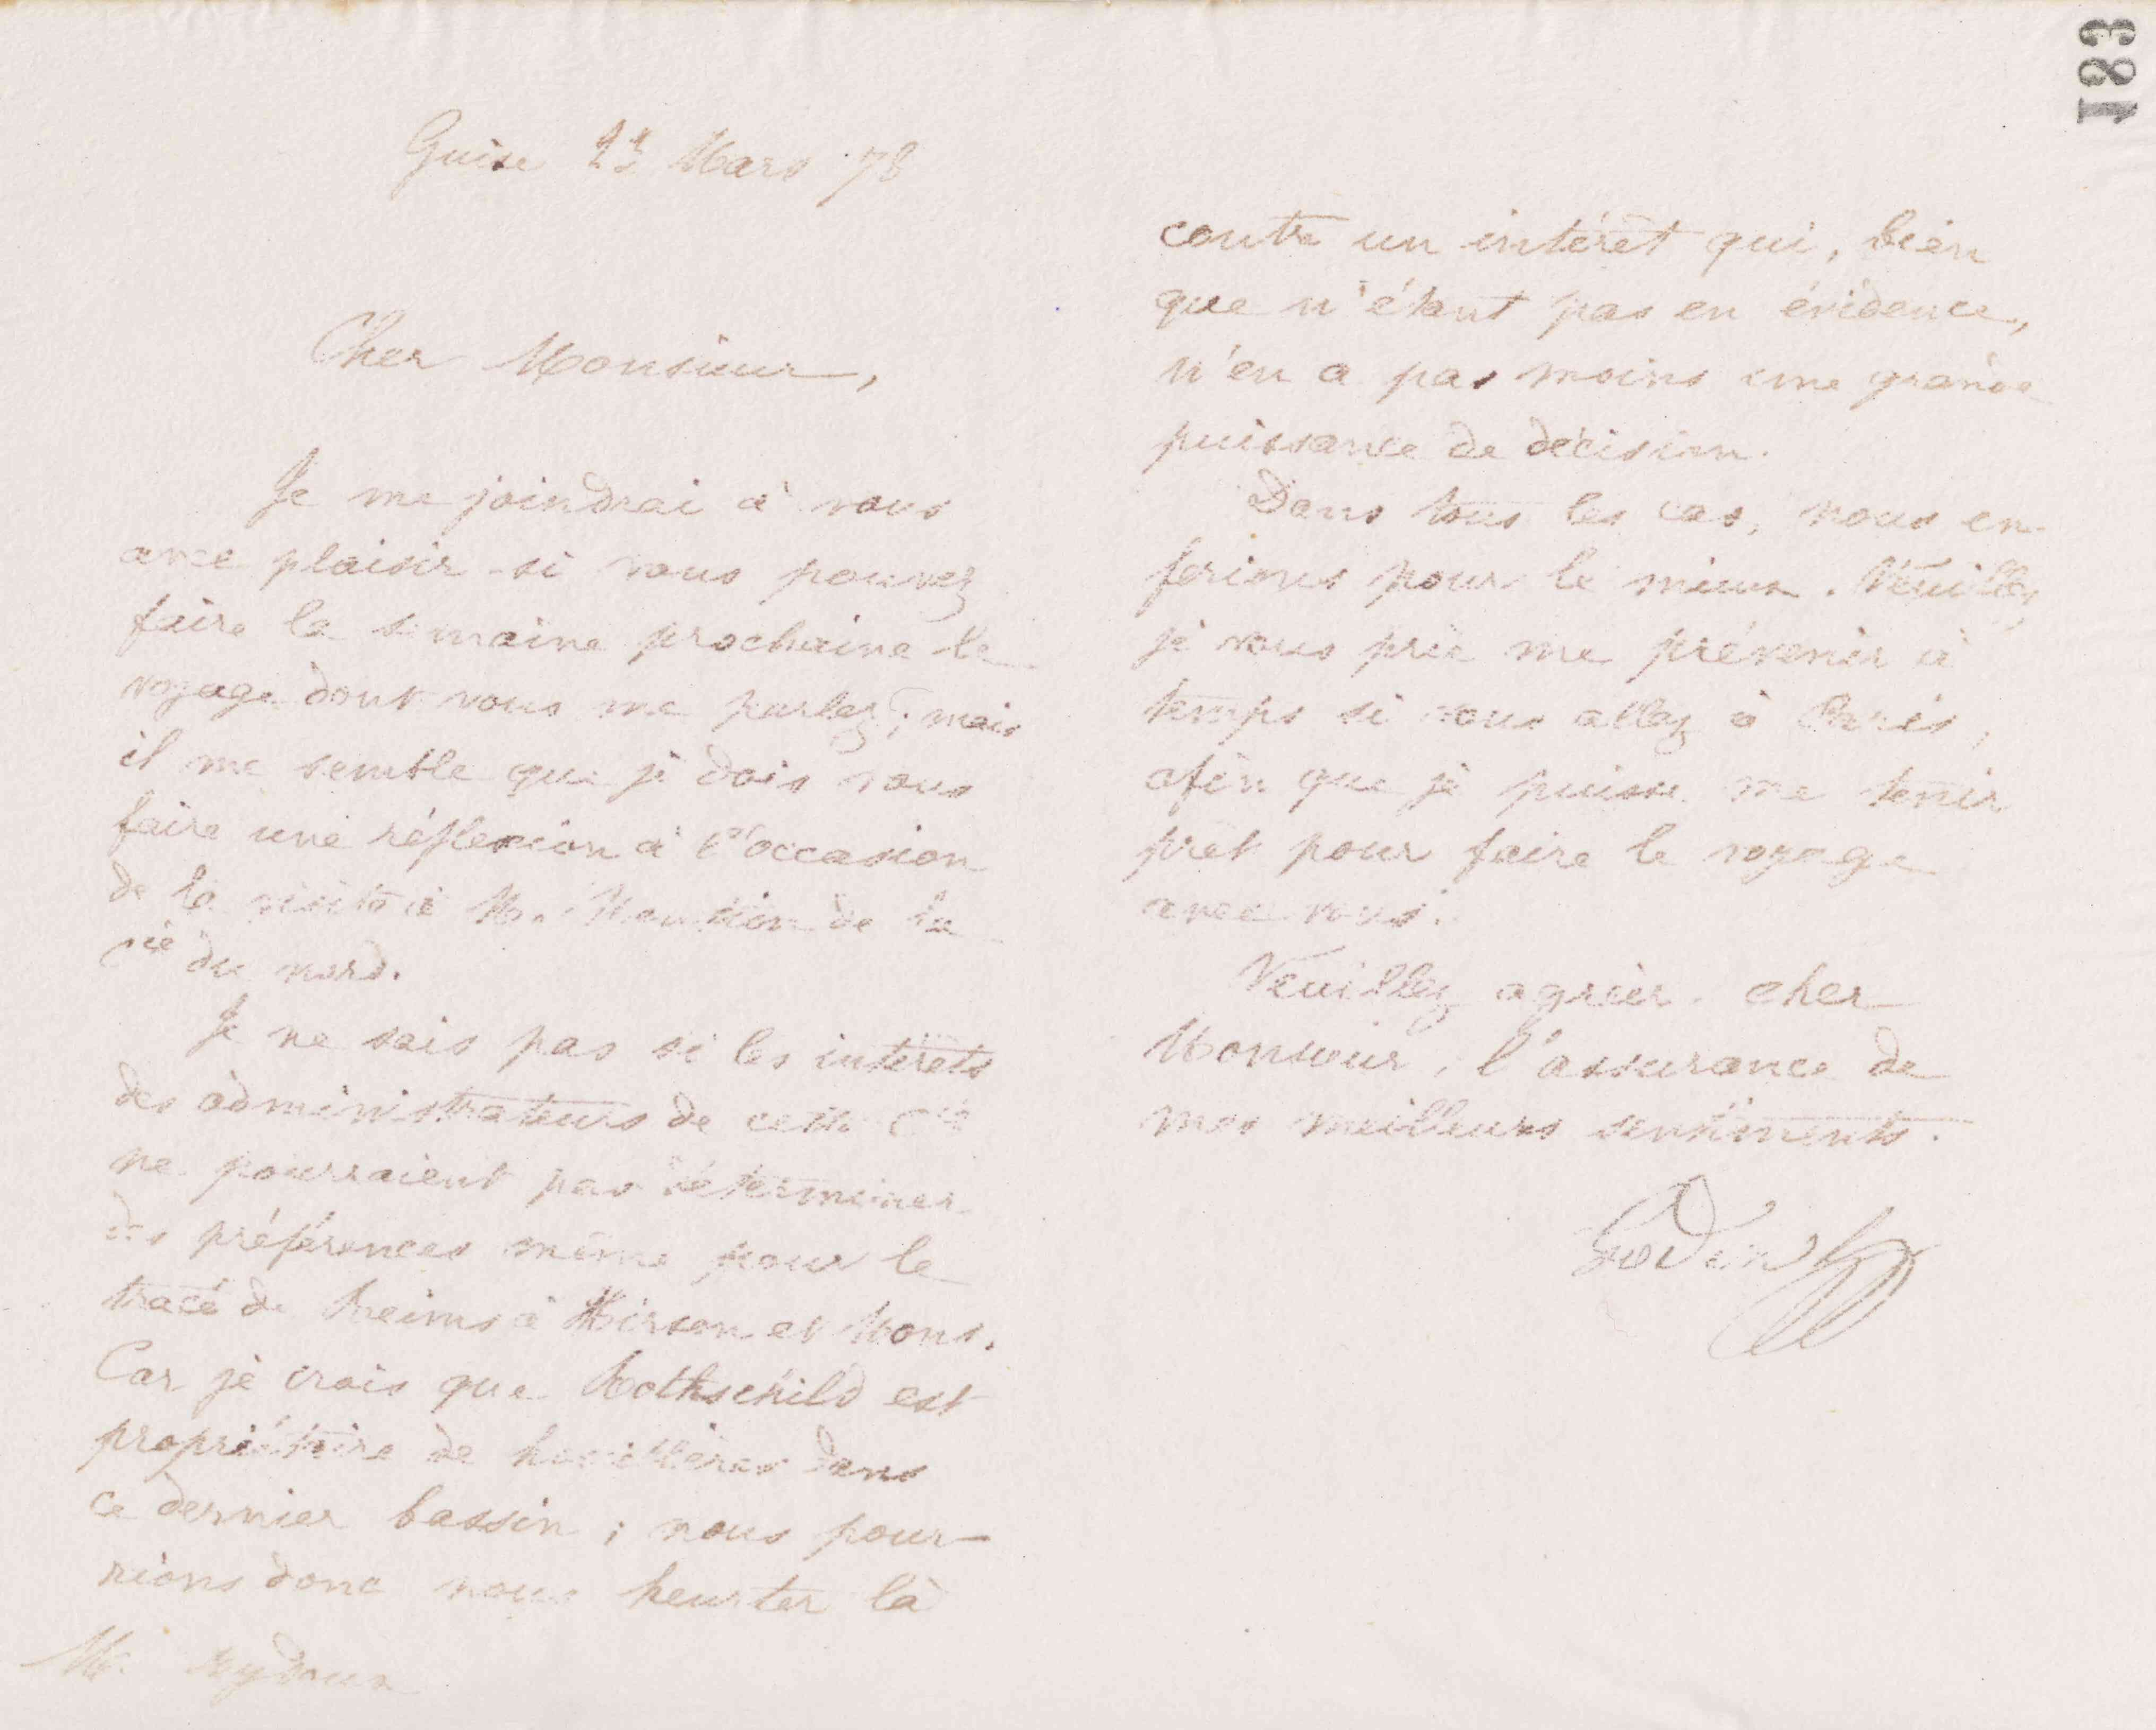 183
Guise Mars 78
Cher Monsieur,
Je me joindrai à vous
avec plaisir si vous pouvez
faire la semaine prochaine le
voyage dont vous me parlez ; mais
il me semble que je dois vous
faire une réflexion à l'occasion
de la visite à Mr. de la
Cie du nord.
Je ne sais pas si les intérêts
des administrateurs de cette Cie
ne pourraient pas déterminer
des préférences même pour le
tracé de Reims à Hirson et Mons.
Car je crois que Rothschild est
propriétaire de houillères dans
ce dernier bassin ; nous pour-
rions donc nous heurter là
Mr.
contre un intérêt qui, bien
que n'étant pas en évidence,
n'en a pas moins une grande
puissance de décision.
Dans tous les cas, nous en
ferions pour le mieux. Veuillez
je vous prie me prévenir à
temps si vous allez à Paris,
afin que je puisse me tenir
prêt pour faire le voyage
avec vous.
Veuillez agréer, cher
Monsieur, l'assurance de
mes meilleurs sentiments.
Godin